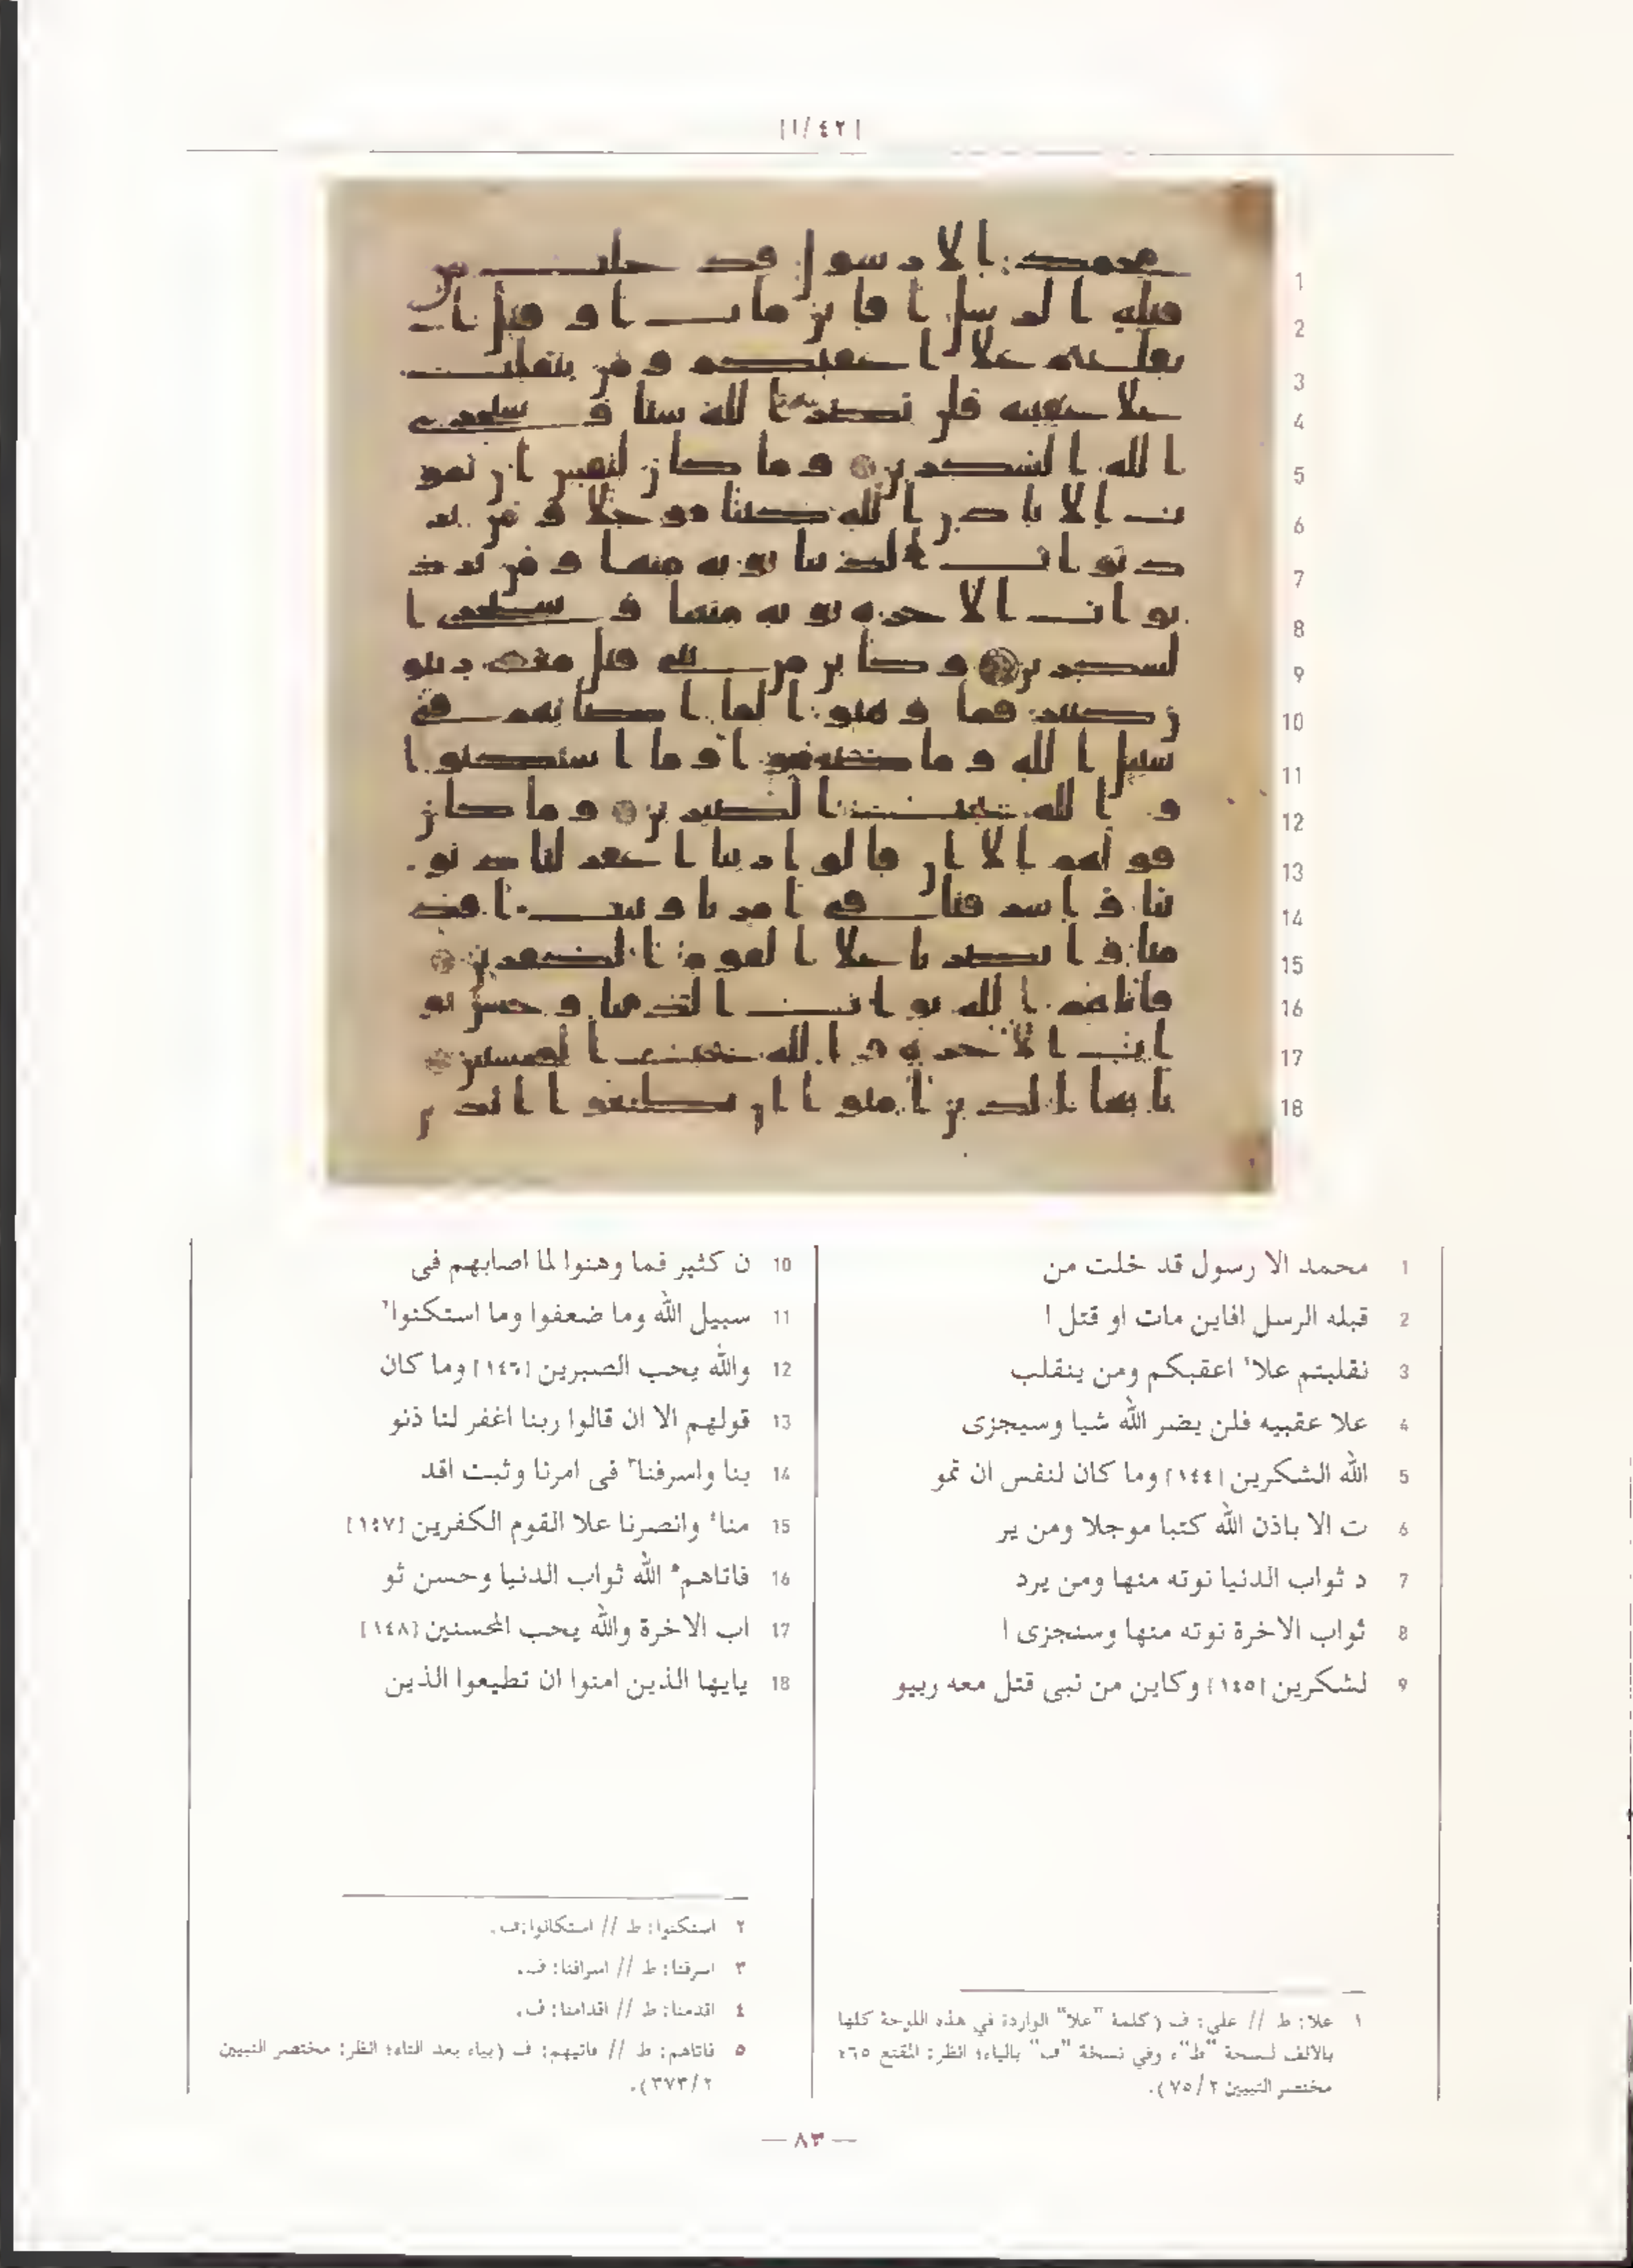 [١/٤٢]
1 محمد الا رسول قد خلت من
2 قبله الرسل افاين مات او قتل ا
3 نقلبتم علا١ اعقبكم ومن ينقلب
4 علا عقبيه فلن يضر الله شيا وسيجزى
5 الله الشكرين [١٤٤] وما كان لنفس ان تمو
6 ت الا باذن الله كتبا موجلا ومن ير
7 د ثواب الدنيا نوته منها ومن يرد
8 ثواب الاخرة نوته منها وسنجزى ا
9 لشكرين [١٤٥] وكاين من نبى قتل معه ربيو
10 ن كثير فما وهنوا لما اصابهم فى
11 سبيل الله وما ضعفوا وما استكنوا٢
12 والله يحب الصبرين [١٤٦] وما كان
13 قولهم الا ان قالوا ربنا اغفر لنا ذنو
14 بنا واسرفنا٣ فى امرنا وثبت اقد
15 منا٤ وانصرنا علا القوم الكفرين [١٤٧]
16 فاتاهم٥ الله ثواب الدنيا وحسن ثو
17 اب الاخرة والله يحب المحسنين [١٤٨]
18 يايها الذين امنوا ان تطيعوا الذين
١ علا: ط // على: ف (كلمة "علا" الواردة في هذه اللوحة كلها
بالالف لنسخة "ط"، وفي نسخة "ف" بالياء؛ انظر: المقنع ٦٥؛
مختصر التبيين ٧٥/٢).
٢ استكنوا: ط // استكانوا: ف.
٣ اسرفنا: ط // اسرافنا: ف.
٤ اقدمنا: ط // اقدامنا: ف.
٥ فاتاهم: ط // فاتيهم: ف (بياء بعد التاء؛ انظر: مختصر التبيين
٣٧٣/٢).
— ٨٣ —